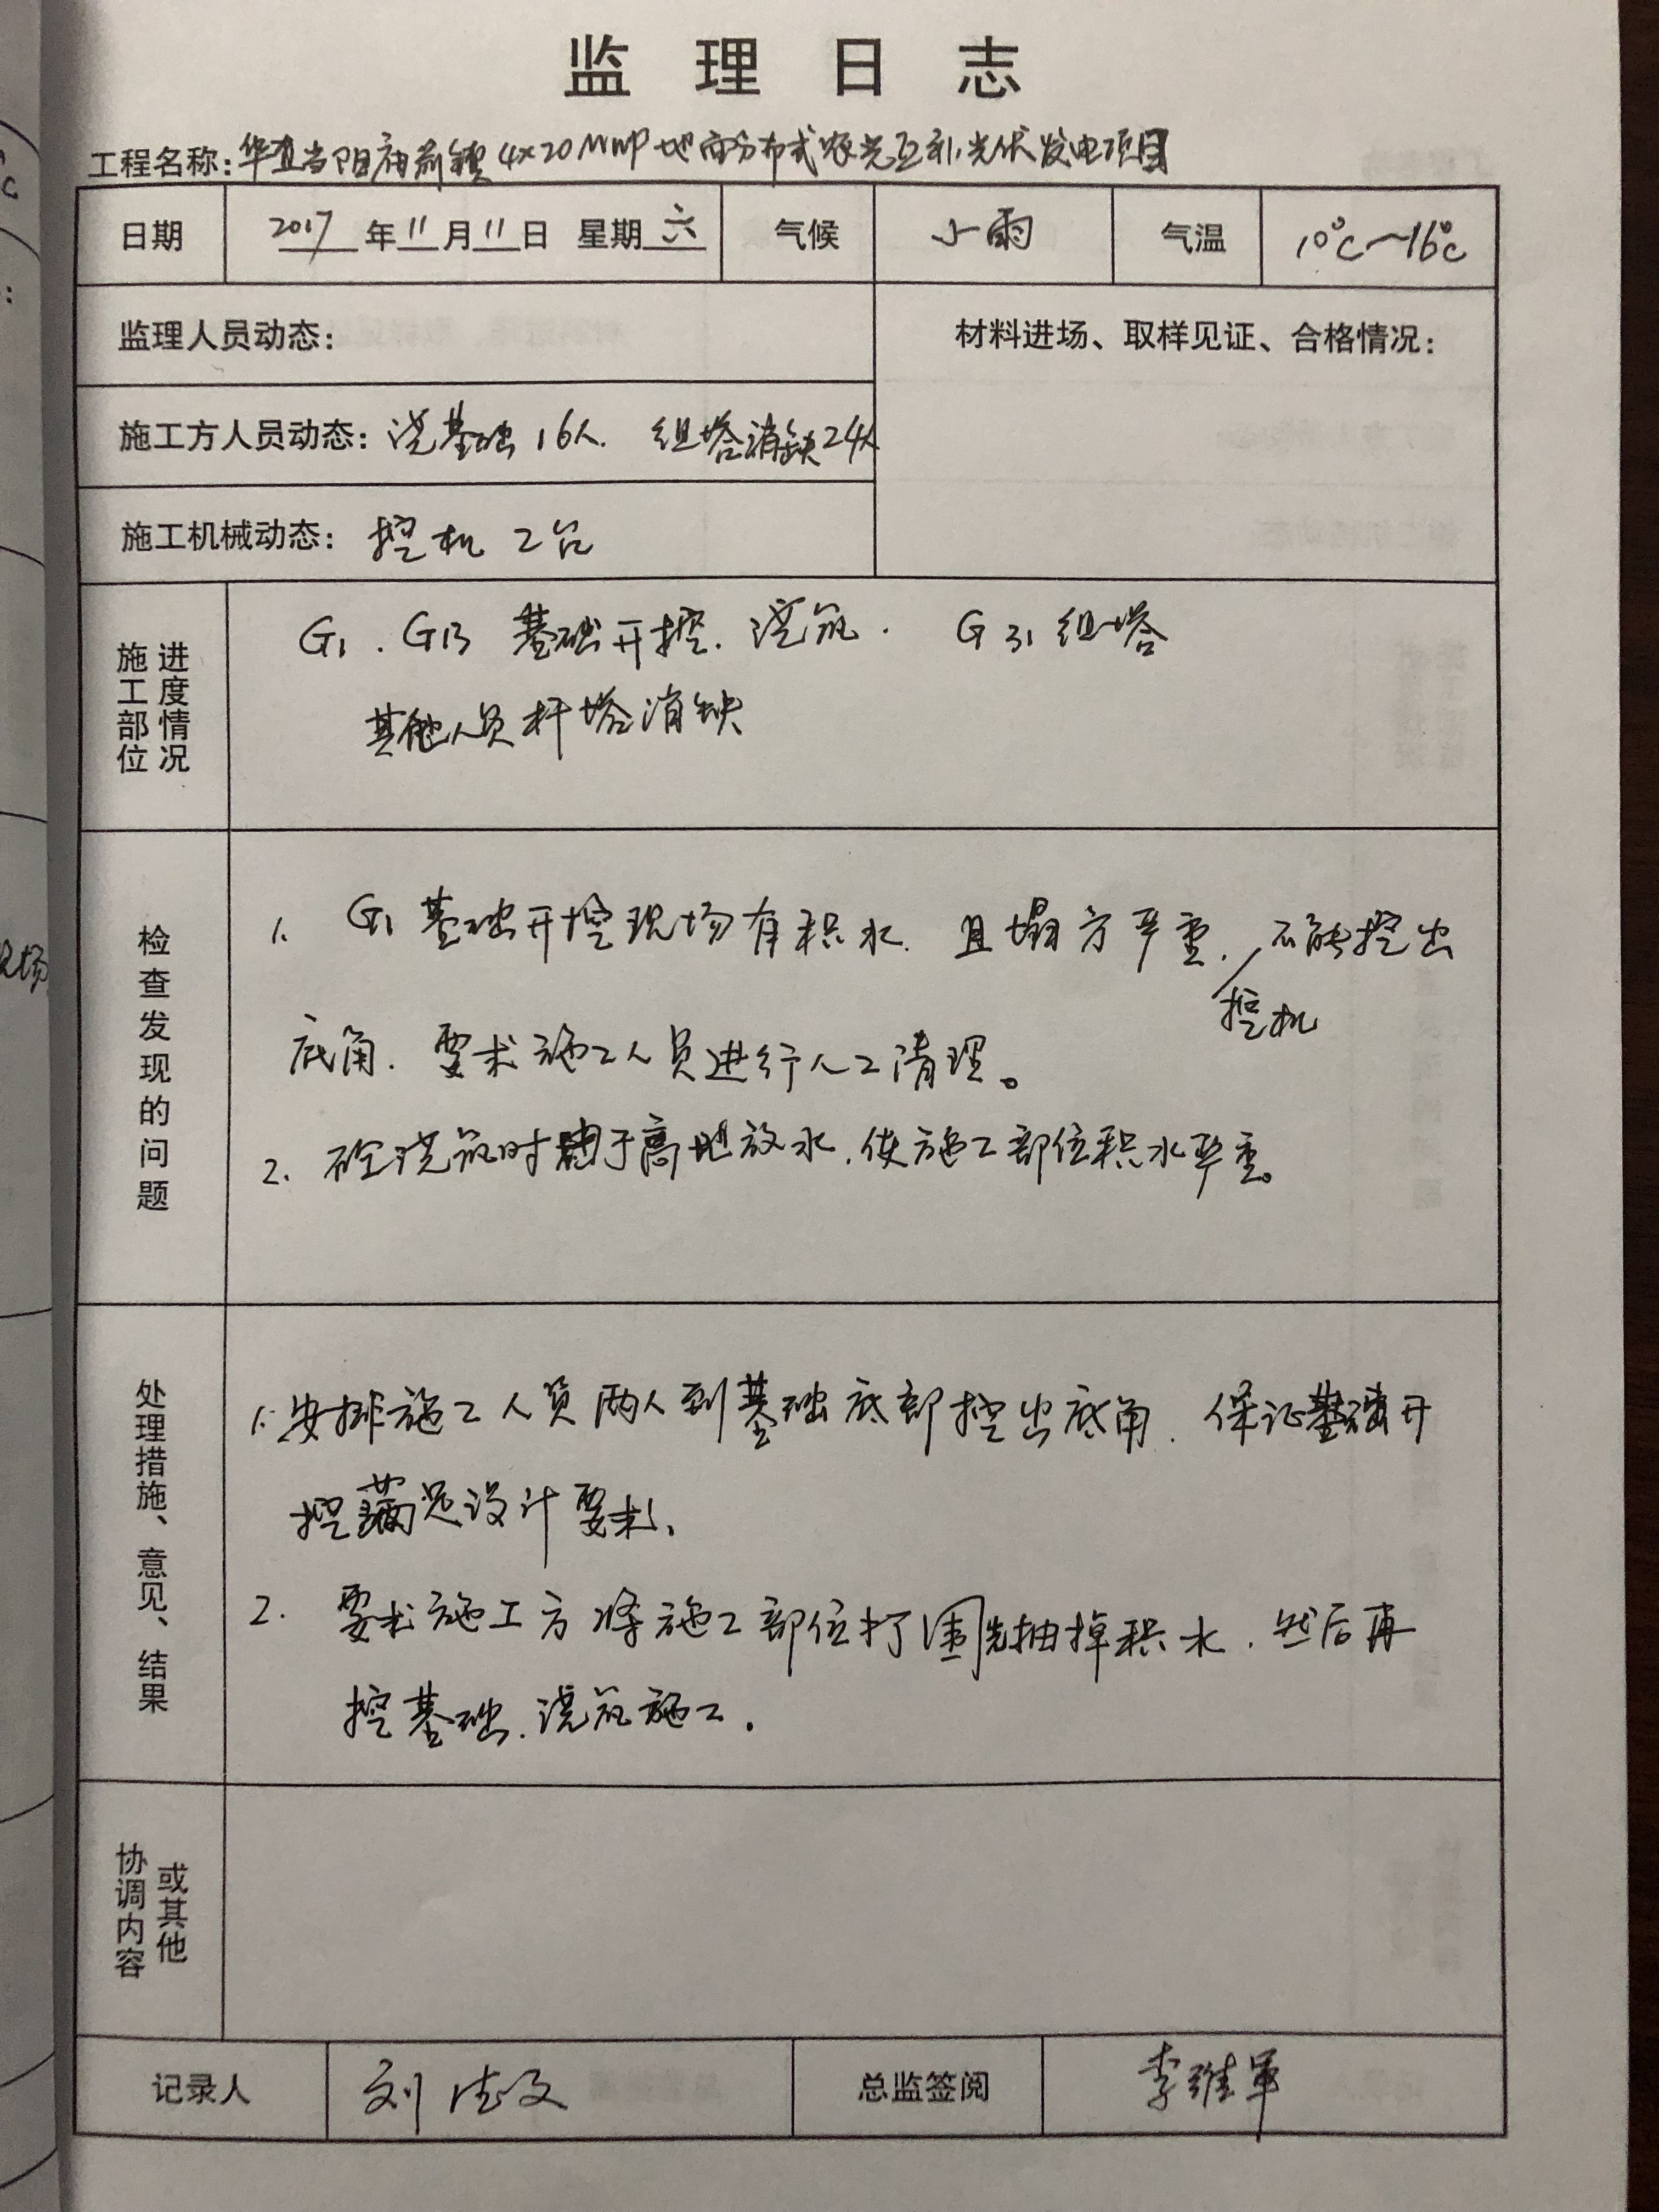 监理日志
工程名称:华直当阳庙前镇4×20MWP地面分布式农光互补光伏发电项目
日期 2017年11月11日 星期六 气候 小雨 气温 10℃~16℃
监理人员动态: 材料进场、取样见证、合格情况:
施工方人员动态:浇基础16人. 组塔消缺24人
施工机械动态: 挖机 2台
施工部位 进度情况
G1.G13 基础开挖.浇筑. G31组塔
其他人员杆塔消缺
检查发现的问题
1. G1基础开挖现场有积水.且塌方严重.挖机不能挖出
底角.要求施工人员进行人工清理。
2. 砼浇筑时由于高地放水.使施工部位积水严重。
处理措施、意见、结果
1.安排施工人员两人到基础底部挖出底角.保证基础开
挖满足设计要求.
2. 要求施工方将施工部位打围先抽掉积水.然后再
挖基础.浇筑施工.
协调内容 或其他
记录人 刘 总监签阅 李维军